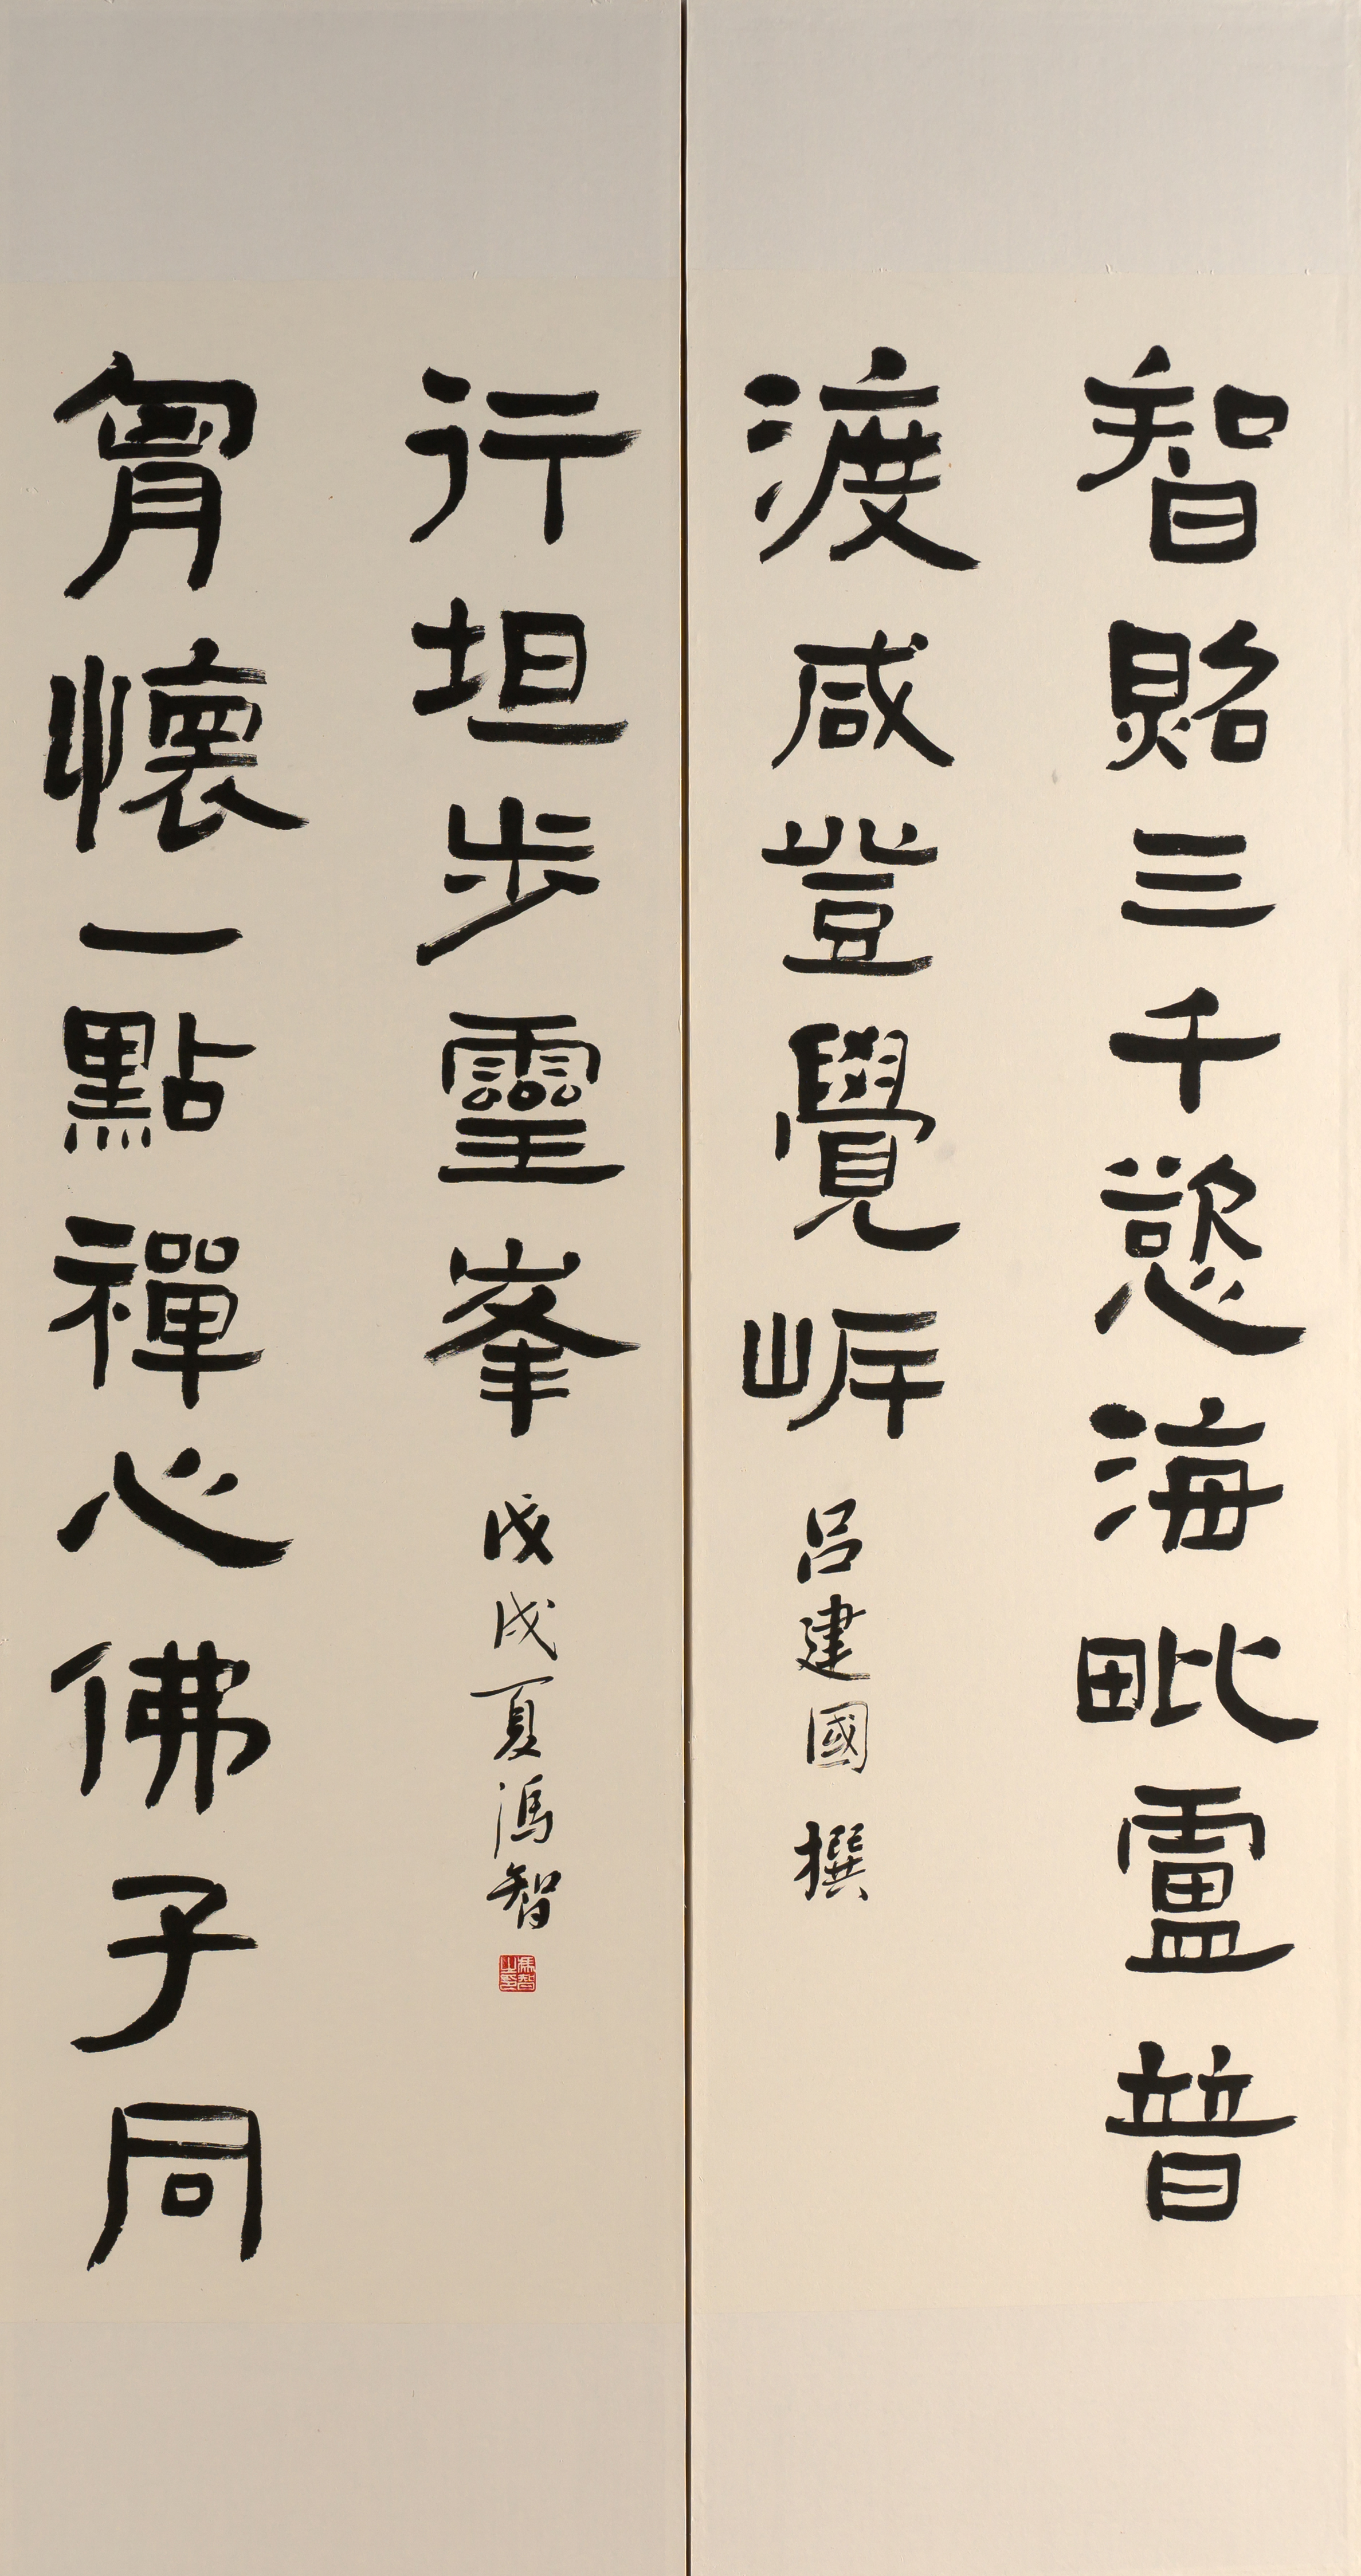 智照三千慾海毗盧普
渡咸登覺岸
呂建國 撰
胷懷一點禪心佛子同
行坦步靈峯
戊戌夏馮智
馮智之印